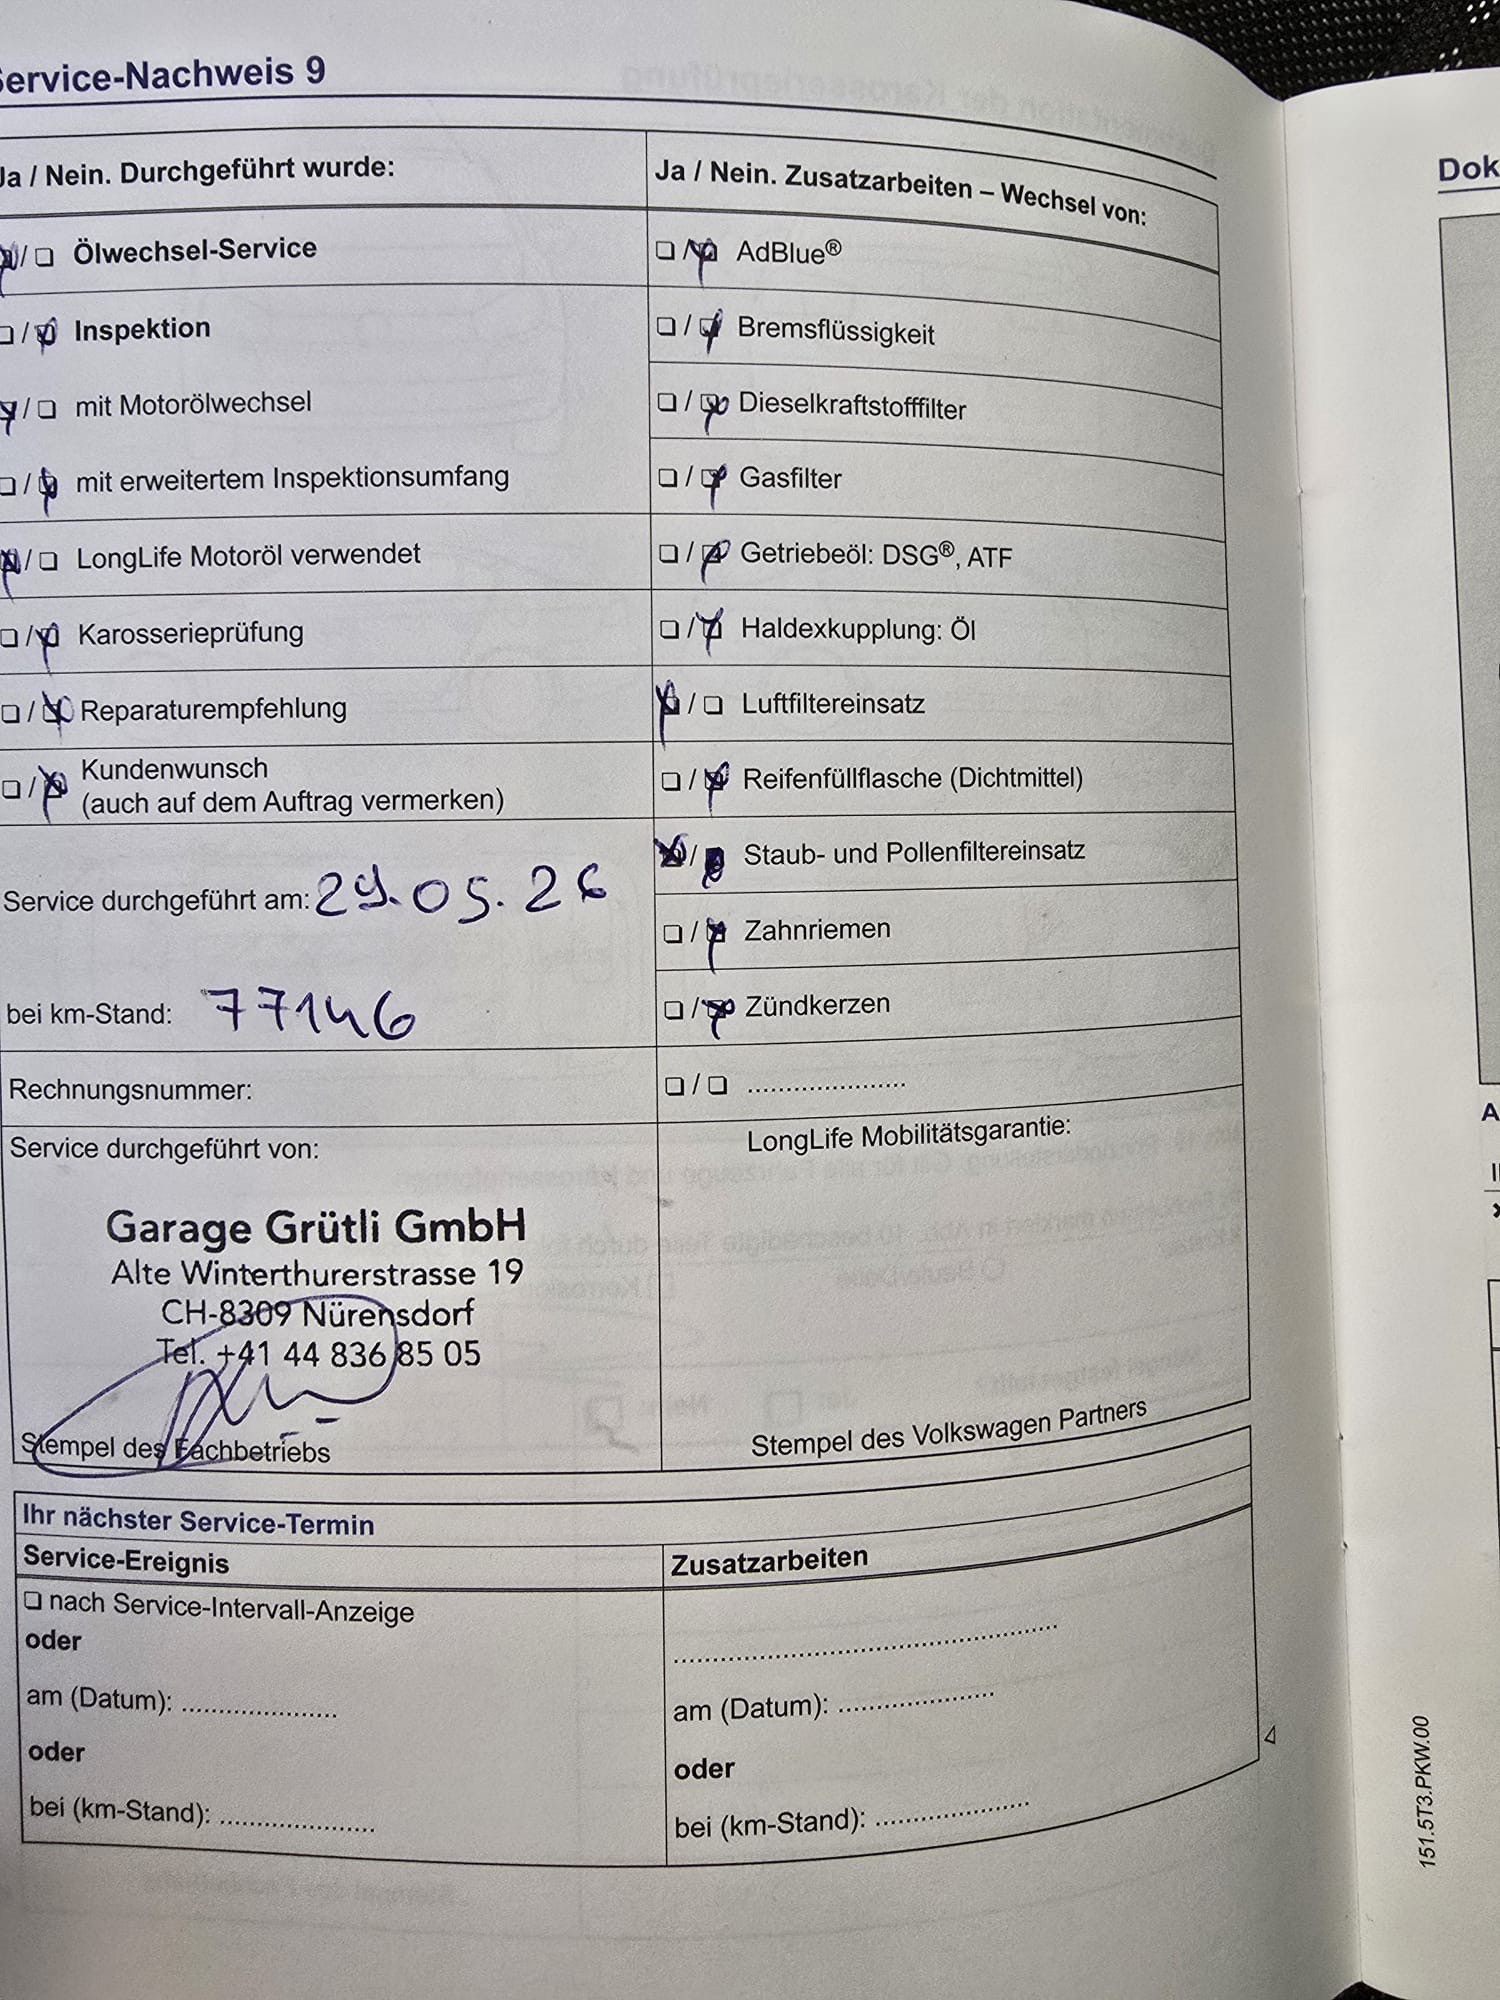 Service-Nachweis 9
Ja / Nein. Durchgeführt wurde:
Ölwechsel-Service
Inspektion
mit Motorölwechsel
mit erweitertem Inspektionsumfang
LongLife Motoröl verwendet
Karosserieprüfung
Reparaturempfehlung
Kundenwunsch
(auch auf dem Auftrag vermerken)
Service durchgeführt am: 29.05.26
bei km-Stand: 77146
Rechnungsnummer:
Ja / Nein. Zusatzarbeiten – Wechsel von:
AdBlue®
Bremsflüssigkeit
Dieselkraftstofffilter
Gasfilter
Getriebeöl: DSG®, ATF
Haldexkupplung: Öl
Luftfiltereinsatz
Reifenfüllflasche (Dichtmittel)
Staub- und Pollenfiltereinsatz
Zahnriemen
Zündkerzen
.....................
Service durchgeführt von:
Garage Grütli GmbH
Alte Winterthurerstrasse 19
CH-8309 Nürensdorf
Tel. +41 44 836 85 05
Stempel des Fachbetriebs
LongLife Mobilitätsgarantie:
Stempel des Volkswagen Partners
Ihr nächster Service-Termin
Service-Ereignis
nach Service-Intervall-Anzeige
oder
am (Datum): .....................
oder
bei (km-Stand): .....................
Zusatzarbeiten
.....................................................
am (Datum): .....................
oder
bei (km-Stand): .....................
151.5T3.PKW.00